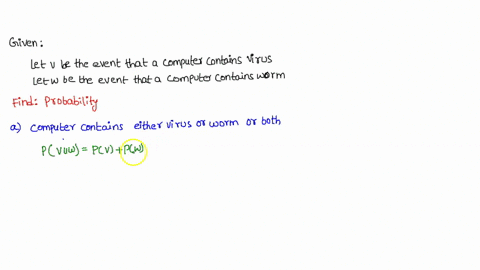 Given:
Let v be the event that a computer contains virus
Let w be the event that a computer contains worm
Find: Probability
a) computer contains either virus or worm or both
P(vuw) = P(v) + P(w)